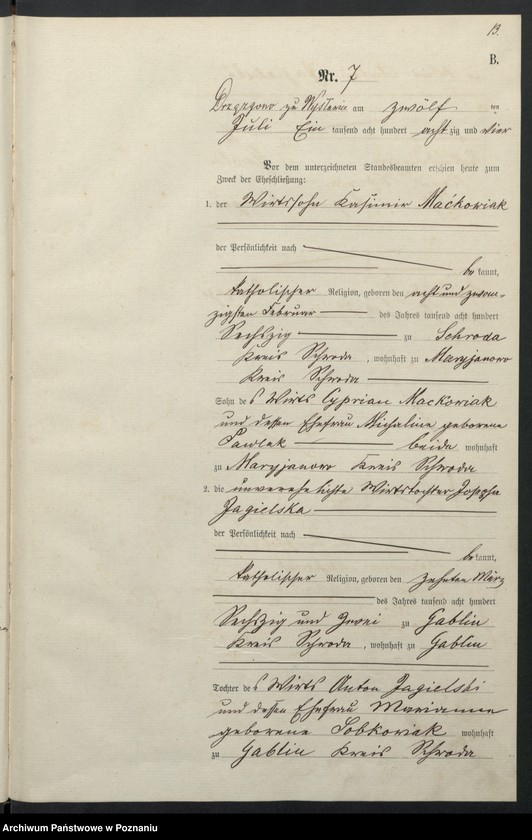 13.
B.
Nr. 7
am zwölf ten
Juli Ein tausend acht hundert acht zig und vier
Vor dem unterzeichneten Standesbeamten erschien heute zum
Zweck der Eheschließung:
1. der Wirtssohn Kasimir Maćkowiak
der Persönlichkeit nach
be kannt,
katholischer Religion, geboren den acht und zwan-
zigsten Februar des Jahres tausend acht hundert
Sechszig zu Schroda
Kreis Schroda, wohnhaft zu Maryjanowo
Kreis Schroda
Sohn des Wirts Cyprian Maćkowiak
und dessen Ehefrau Michaline geborene
Pawlak beide wohnhaft
zu Maryjanowo Kreis Schroda
2. die unverehelichte Wirtstochter Josepha
Jagielska
der Persönlichkeit nach
be kannt,
katholischer Religion, geboren den zehnten März
des Jahres tausend acht hundert
Sechszig und zwei zu Gablin
Kreis Schroda, wohnhaft zu Gablin
Tochter des Wirts Anton Jagielski
und dessen Ehefrau Marianna
geborene Sobkowiak wohnhaft
zu Gablin Kreis Schroda
Archiwum Państwowe w Poznaniu